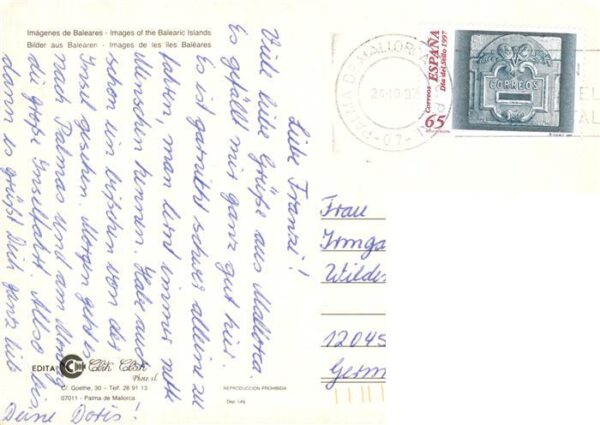 Imágenes de Baleares - Images of the Balearic Islands
Bilder aus Balearen - Images de les îles Baléares
Liebe Franzi!
Viele liebe Grüße aus Mallorca.
Es gefällt mir ganz gut hier.
Es ist gar nicht schwer allein zu
man lernt immer nette
Menschen kennen. Habe auch
schon ein bißchen von der
Insel gesehen. Morgen geht es
nach Palmas und am
die große Inselfahrt. Also bis
dann es grüßt Dich ganz lieb
Deine Doris!
EDITA
Clik Clak
C/. Goethe, 30 - Telf. 28 91 13
07011 - Palma de Mallorca
REPRODUCCION PROHIBIDA
Dep. Leg.
PALMA D. MALLORCA
-07-
Correos ESPAÑA
Día del Sello 1997
65
CORREOS
Frau
Irmga
Wilde
12045
Germ